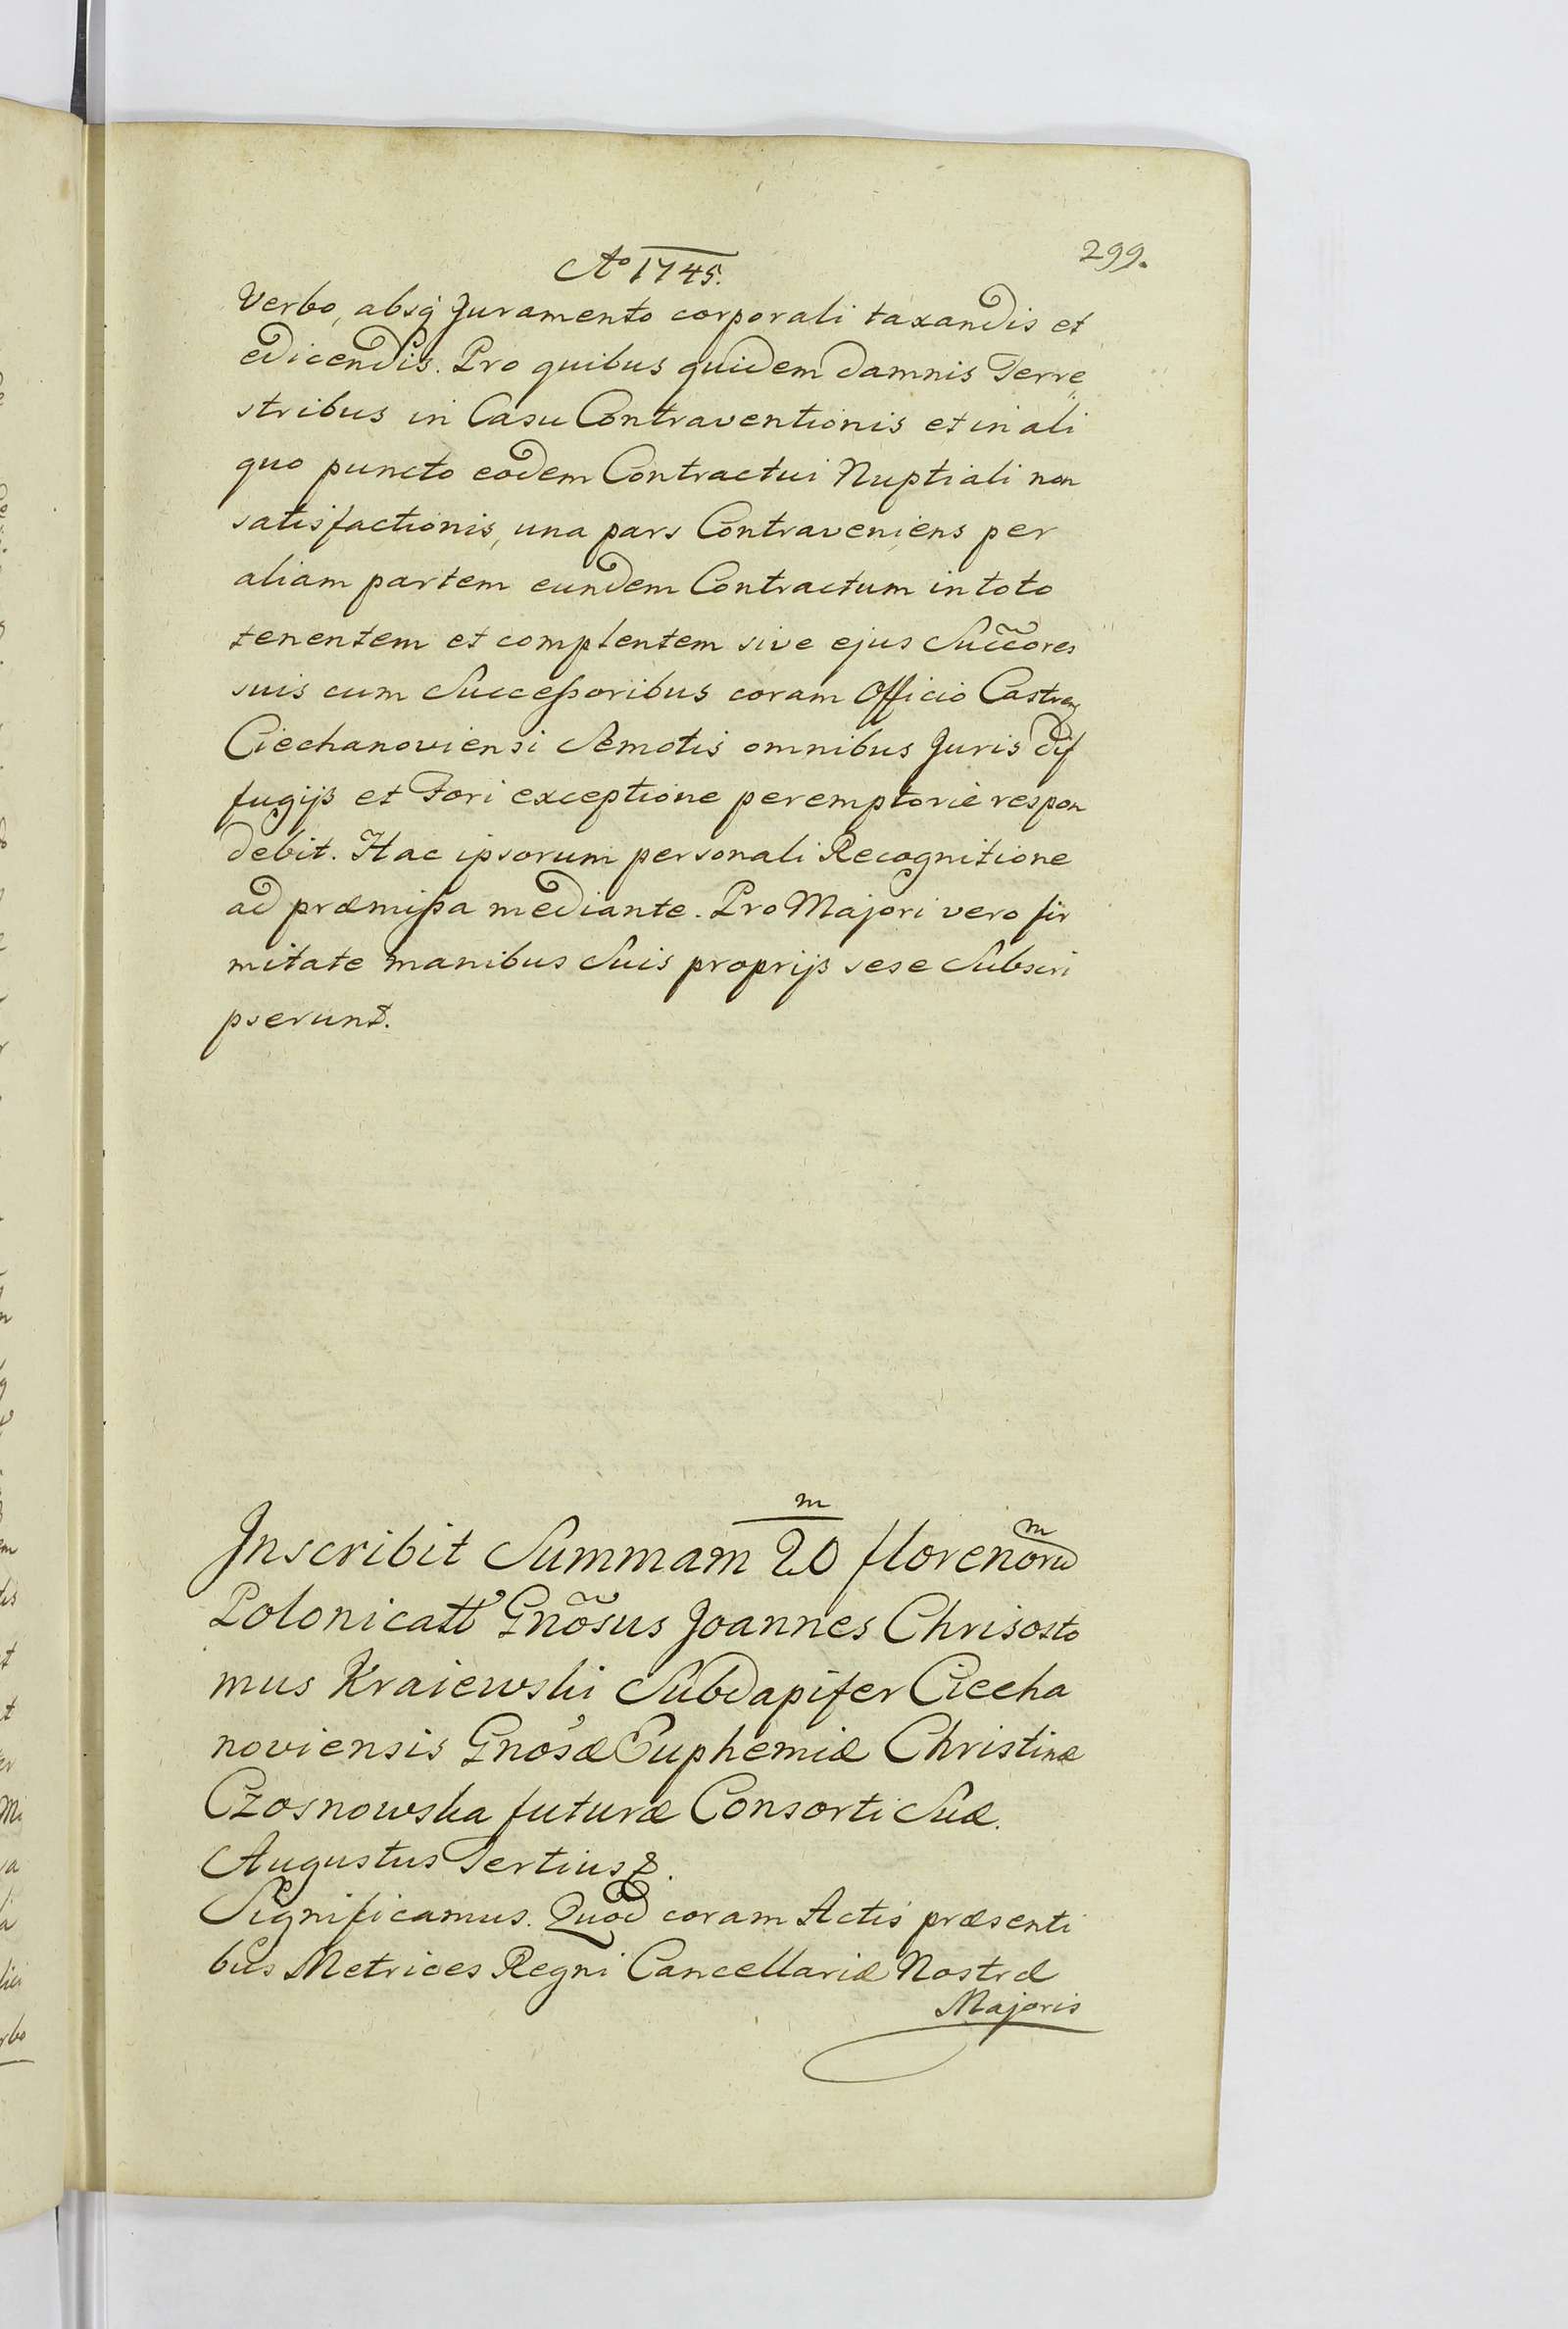 299.
Aº 1745.
Verbo, absq Juramento corporali taxandis et
edicendis. Pro quibus quidem damnis Terre„
stribus in Casu Contraventionis et in ali
quo puncto eodem Contractui Nuptiali non
satisfactionis, una pars Contraveniens per
aliam partem eundem Contractum in toto
tenentem et complentem sive ejus Succ̃ores
suis cum Successoribus coram Officio Castren
Ciechanoviensi Semotis omnibus Juris dif
fugijs et Fori exceptione peremptorie respon
debit. Hac ipsorum personali Recognitione
ad præmissa mediante. Pro Majori vero fir
mitate manibus Suis proprijs sese Subscri
pserunt.
Inscribit Summam 20 m florenorũ m
Polonicatt Gnõsus Joannes Chrisosto
mus Kraiewski Subdapifer Ciecha
noviensis Gnosæ Euphemiæ Christinæ
Czosnowska futuræ Consorti Suæ.
Augustus Tertius &.
Significamus. Quod coram Actis præsenti
bus Metrices Regni Cancellariæ Nostræ
Majoris